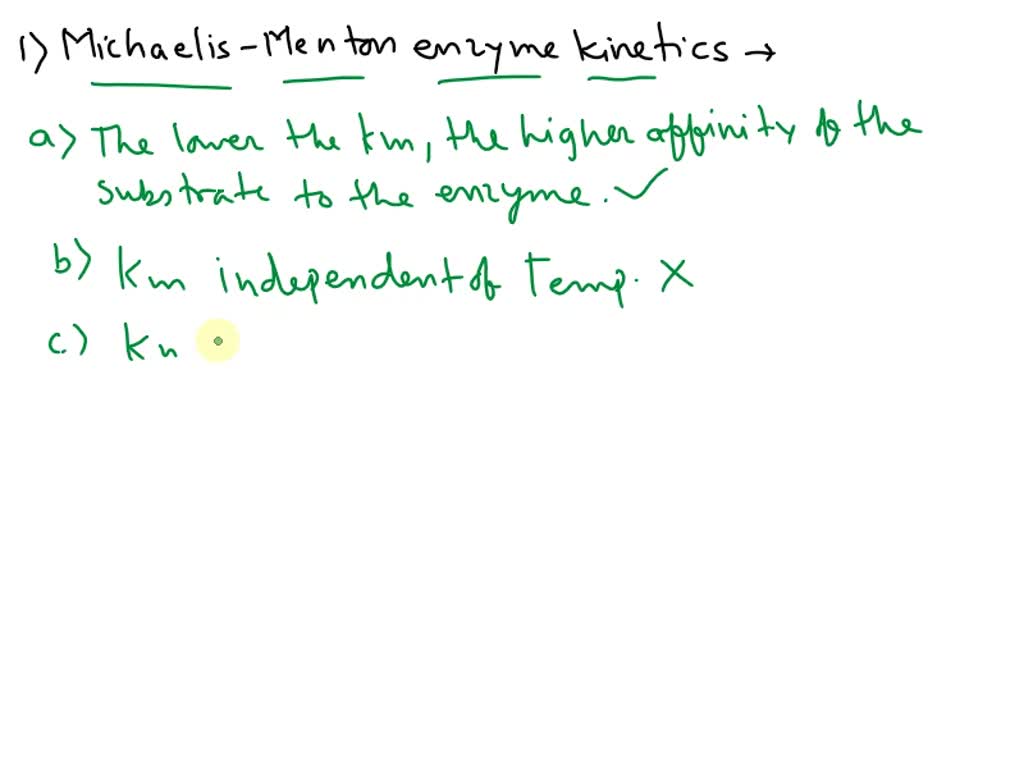 1) Michaelis-Menton enzyme kinetics →
a) The lower the km, the higher affinity of the
substrate to the enzyme. ✓
b) Km independent of Temp. X
c.) Kn